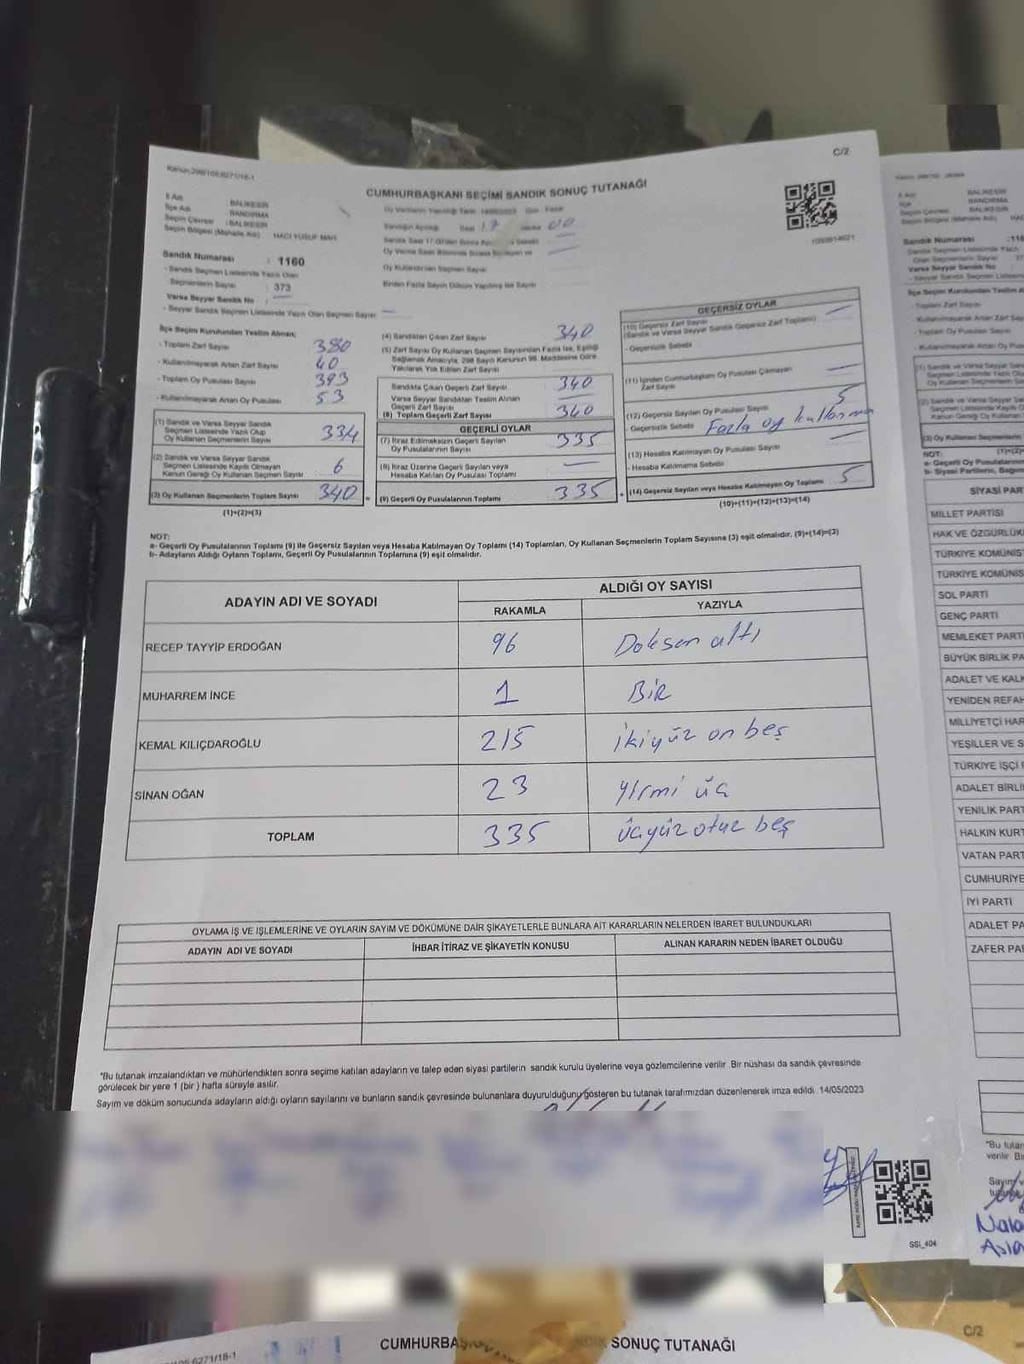 C/2
CUMHURBAŞKANI SEÇİMİ SANDIK SONUÇ TUTANAĞI
İl Adı : BALIKESİR
İlçe Adı : BANDIRMA
Seçim Çevresi : BALIKESİR
Seçim Bölgesi (Mahalle Adı) : HACI YUSUF MAH.
Sandık Numarası : 1160
- Sandık Seçmen Listesinde Yazılı Olan
Seçmenlerin Sayısı : 373
Varsa Seyyar Sandık No :
- Seyyar Sandık Seçmen Listesinde Yazılı Olan Seçmen Sayısı
Oy Kullandırılan Seçmen Sayısı
İlçe Seçim Kurulundan Teslim Alınan;
- Toplam Zarf Sayısı 380
- Kullanılmayarak Artan Zarf Sayısı 40
- Toplam Oy Pusulası Sayısı 393
- Kullanılmayarak Artan Oy Pusulası 53
(1) Sandık ve Varsa Seyyar Sandık
Seçmen Listesinde Yazılı Olup
Oy Kullanan Seçmenlerin Sayısı 334
(2) Sandık ve Varsa Seyyar Sandık
Seçmen Listesinde Kayıtlı Olmayan
Kanun Gereği Oy Kullanan Seçmen Sayısı 6
(3) Oy Kullanan Seçmenlerin Toplam Sayısı 340
(1)+(2)=(3)
(4) Sandıktan Çıkan Zarf Sayısı 340
(5) Zarf Sayısı Oy Kullanan Seçmen Sayısından Fazla ise, Eşitliği
Sağlamak Amacıyla, 298 Sayılı Kanunun 98. Maddesine Göre
Yakılarak Yok Edilen Zarf Sayısı
Sandıkta Çıkan Geçerli Zarf Sayısı 340
Varsa Seyyar Sandıktan Teslim Alınan
Geçerli Zarf Sayısı
(6) Toplam Geçerli Zarf Sayısı 340
GEÇERLİ OYLAR
(7) İtiraz Edilmeksizin Geçerli Sayılan
Oy Pusulalarının Sayısı 335
(8) İtiraz Üzerine Geçerli Sayılan veya
Hesaba Katılan Oy Pusulası Toplamı
(9) Geçerli Oy Pusulalarının Toplamı 335
GEÇERSİZ OYLAR
(10) Geçersiz Zarf Sayısı
(Sandık ve Varsa Seyyar Sandık Geçersiz Zarf Toplamı)
- Geçersizlik Sebebi
(11) İçinden Cumhurbaşkanı Oy Pusulası Çıkmayan
Zarf Sayısı
(12) Geçersiz Sayılan Oy Pusulası Sayısı 5
- Geçersizlik Sebebi Fazla oy kullanma
(13) Hesaba Katılmayan Oy Pusulası Sayısı
- Hesaba Katılmama Sebebi
(14) Geçersiz Sayılan veya Hesaba Katılmayan Oy Toplamı 5
(10)+(11)+(12)+(13)=(14)
NOT:
a- Geçerli Oy Pusulalarının Toplamı (9) ile Geçersiz Sayılan veya Hesaba Katılmayan Oy Toplamı (14) Toplamları, Oy Kullanan Seçmenlerin Toplam Sayısına (3) eşit olmalıdır. (9)+(14)=(3)
b- Adayların Aldığı Oyların Toplamı, Geçerli Oy Pusulalarının Toplamına (9) eşit olmalıdır.
ADAYIN ADI VE SOYADI ALDIĞI OY SAYISI
RAKAMLA YAZIYLA
RECEP TAYYİP ERDOĞAN 96 Doksan altı
MUHARREM İNCE 1 Bir
KEMAL KILIÇDAROĞLU 215 ikiyüz on beş
SİNAN OĞAN 23 yirmi üç
TOPLAM 335 üçyüz otuz beş
OYLAMA İŞ VE İŞLEMLERİNE VE OYLARIN SAYIM VE DÖKÜMÜNE DAİR ŞİKAYETLERLE BUNLARA AİT KARARLARIN NELERDEN İBARET BULUNDUKLARI
ADAYIN ADI VE SOYADI İHBAR İTİRAZ VE ŞİKAYETİN KONUSU ALINAN KARARIN NEDEN İBARET OLDUĞU
*Bu tutanak imzalandıktan ve mühürlendikten sonra seçime katılan adayların ve talep eden siyasi partilerin sandık kurulu üyelerine veya gözlemcilerine verilir. Bir nüshası da sandık çevresinde
görülecek bir yere 1 (bir) hafta süreyle asılır.
Sayım ve döküm sonucunda adayların aldığı oyların sayılarını ve bunların sandık çevresinde bulunanlara duyurulduğunu gösteren bu tutanak tarafımızdan düzenlenerek imza edildi. 14/05/2023
SSİ_404
BALIKESİR
BANDIRMA
BALIKESİR
Sandık Numarası
SİYASİ PAR
MİLLET PARTİSİ
HAK VE ÖZGÜRLÜK
TÜRKİYE KOMÜNİS
TÜRKİYE KOMÜNİS
SOL PARTİ
GENÇ PARTİ
MEMLEKET PARTİ
BÜYÜK BİRLİK PA
ADALET VE KALK
YENİDEN REFAH
MİLLİYETÇİ HAR
YEŞİLLER VE S
TÜRKİYE İŞÇİ
ADALET BİRLİ
YENİLİK PART
HALKIN KURT
VATAN PART
CUMHURİYE
İYİ PARTİ
ADALET PA
ZAFER PA
*Bu tutan
verilir. Bi
CUMHURBAŞ SONUÇ TUTANAĞI
C/2